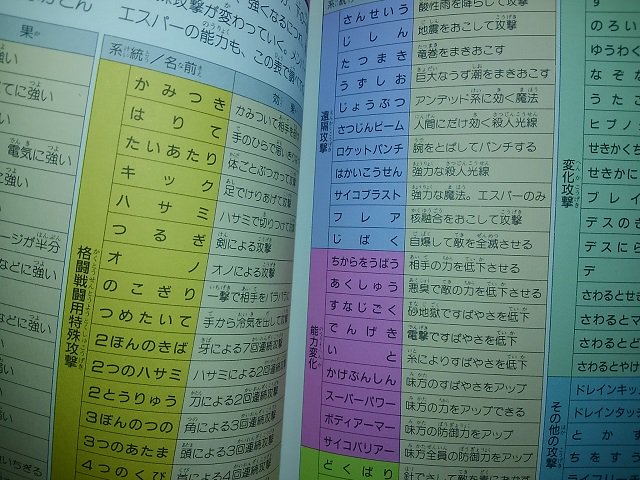 果
に強い
に強い
電気に強い
い
ージが半分
などに強い
い
などに強い
い
いちぎる
強くなるにつ
攻撃が変わっていく。メン
エスパーの能力も、この表で調べ
系統/名前
効果
格闘戦闘用特殊攻撃
かみつき
かみついて相手を
はりて
手のひらで
たいあたり
体ごとぶつかって攻撃
キック
足でけりあげて攻撃
ハサミ
ハサミで切りつけて
つるぎ
剣による攻撃
オノ
オノによる攻撃
のこぎり
一撃で相手をバラバラに
つめたいて
手から冷気を出して攻撃
2ほんのきば
牙による7回連続攻撃
2つのハサミ
ハサミによる2回連続攻撃
2とうりゅう
刀による2回連続攻撃
3ぼんのつの
角による3回連続攻撃
3つのあたま
頭による3回連続攻撃
4つのくび
首による4回連続攻撃
遠隔攻撃
さんせいう
酸性雨を降らして攻撃
じしん
地震をおこして攻撃
たつまき
竜巻をまきおこす
うずしお
巨大なうず潮をまきおこす
じょうぶつ
アンデッド系に効く魔法
さつじんビーム
人間にだけ効く殺人光線
ロケットパンチ
腕をとばしてパンチする
はかいこうせん
強力な殺人光線
サイコブラスト
強力な魔法。エスパーのみ
フレア
核融合をおこして攻撃
じばく
自爆して敵を全滅させる
能力変化
ちからをうばう
相手の力を低下させる
あくしゅう
悪臭で敵の力を低下させる
すなじごく
砂地獄ですばやさを低下
でんげき
電撃ですばやさを低下
いと
糸によりすばやさを低下
かげぶんしん
味方のすばやさをアップ
スーパーパワー
味方の力をアップできる
ボディアーマー
味方の防御力をアップ
サイコバリアー
味方全員の防御力をアップ
どくばり
変化攻撃
のろい
ゆうわく
なぞ
うた
ヒプノ
せきかくち
せきかに
ブレイ
デスのき
デスにら
デ
さわるとせ
さわるとマ
さわるとど
さわるとや
その他の攻撃
ドレインキッ
ドレインタッ
とかす
ちをすう
ライフリー